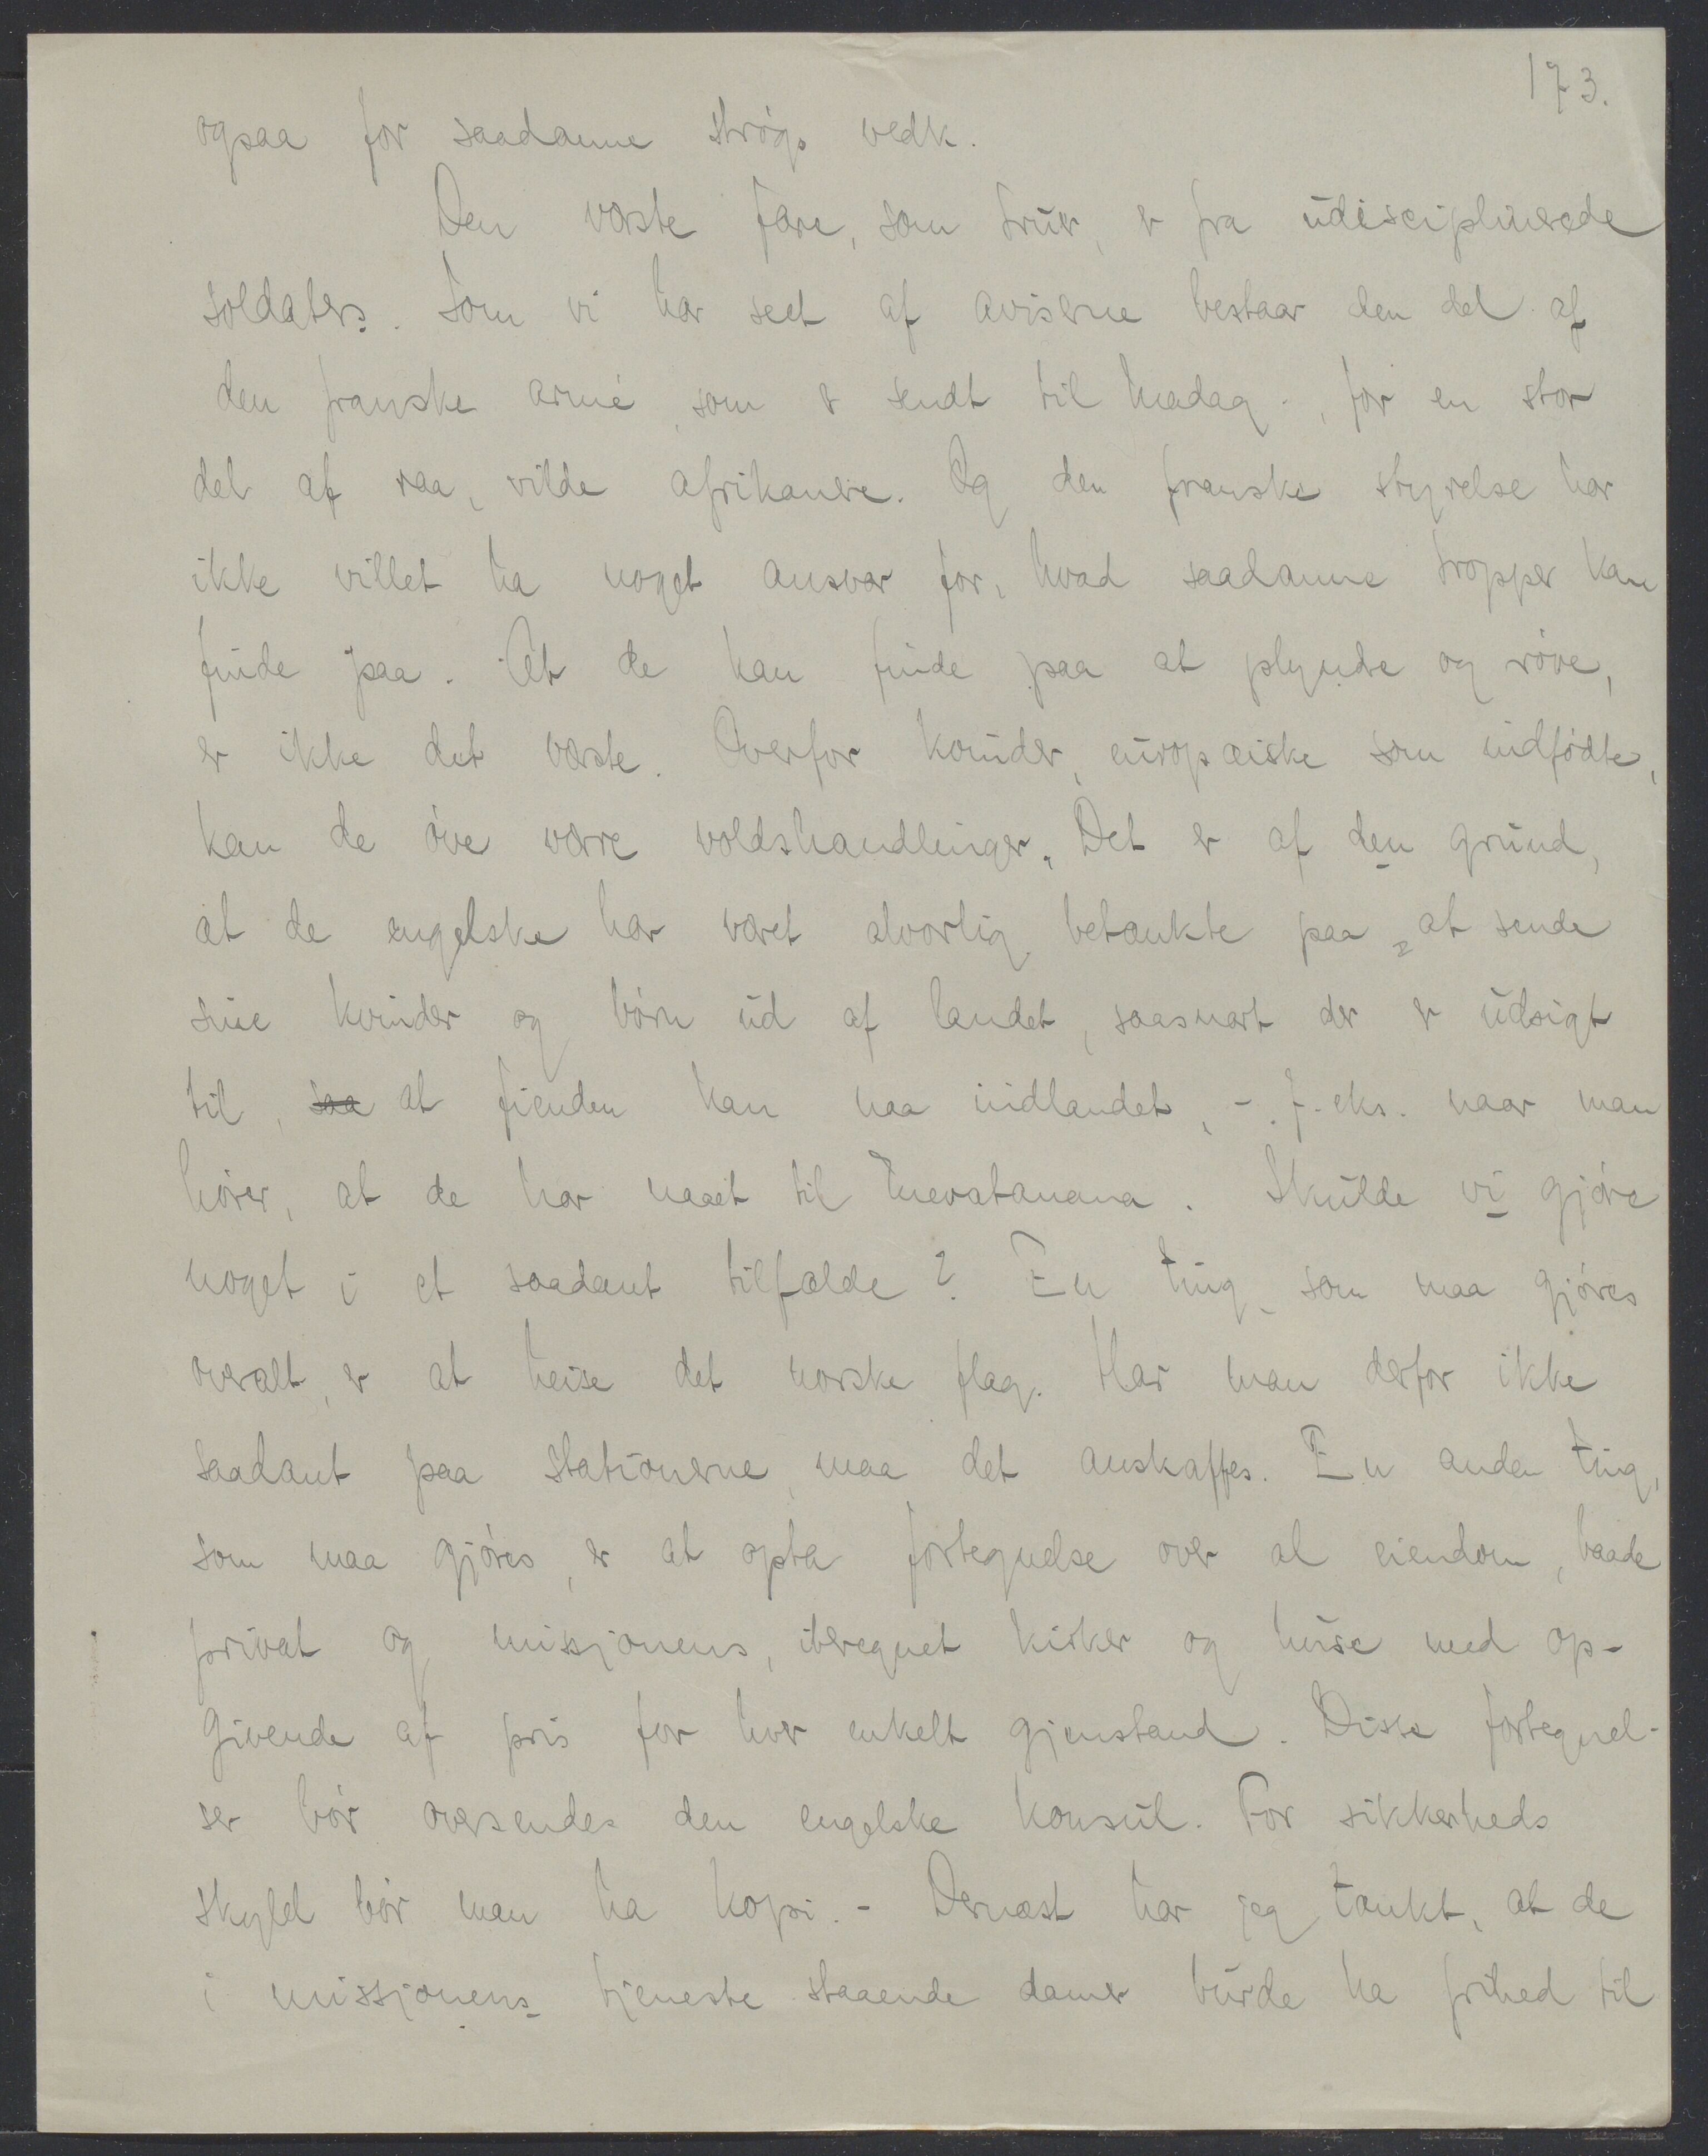 173.
ogsaa for saadanne strøgs vedk.
Den værste fare, som truer, er fra udisciplinerede
soldater. Som vi har seet af aviserne bestaar den del af
den franske armé, som er sendt til Madag., for en stor
del af raa, vilde afrikanere. Og den franske styrelse har
ikke villet ha noget ansvar for, hvad saadanne tropper kan
finde paa. At de kan finde paa at plyndre og røve,
er ikke det værste. Overfor kvinder, europæiske som indfødte,
kan de øve værre voldshandlinger. Det er af den grund,
at de engelske har været alvorlig betænkte paa at sende
sine kvinder og børn ud af landet, saasnart der er udsigt
til, saa at fienden kan naa indlandet, - f. eks. naar man
hører, at de har naaet til Mevatanana. Skulde vi gjøre
noget i et saadant tilfælde? En ting, som maa gjøres
overalt, er at heise det norske flag. Har man derfor ikke
saadant paa stationerne, maa det anskaffes. En anden ting,
som maa gjøres, er at opta fortegnelse over al eiendom, baade
privat og missjonens, iberegnet kirker og huse med op-
givende af pris for hver enkelt gjenstand. Disse fortegnel-
ser bør oversendes den engelske konsul. For sikkerheds
skyld bør man ha kopi. - Dernæst har jeg tænkt, at de
i missjonens tjeneste staaende damer burde ha frihed til